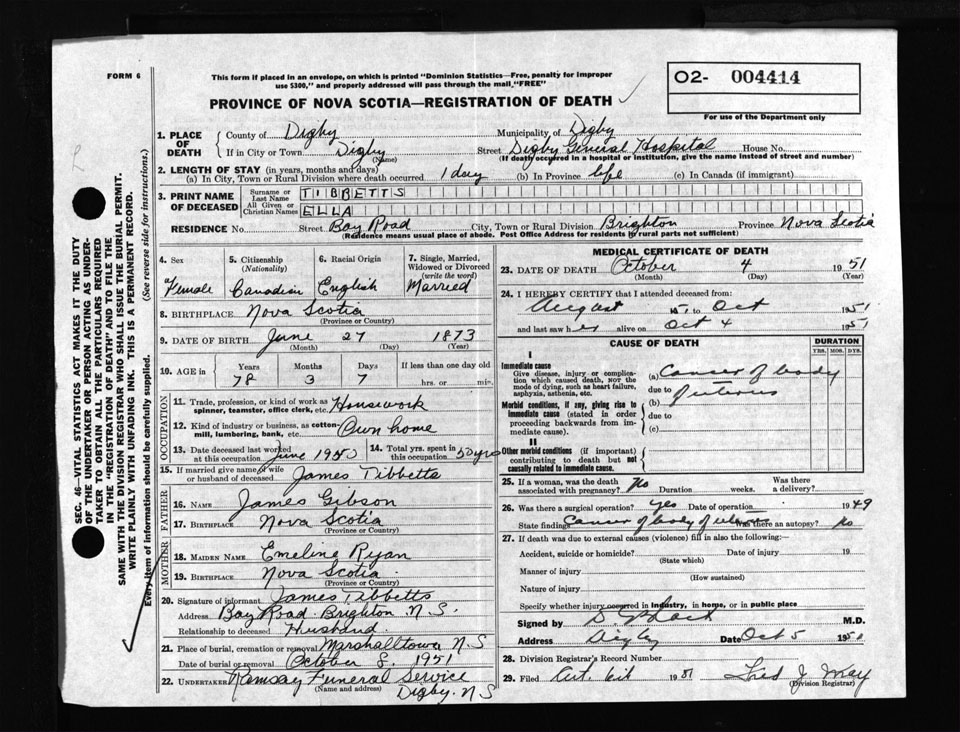 FORM 6
This form if placed in an envelope, on which is printed "Dominion Statistics—Free, penalty for improper
use $300," and properly addressed will pass through the mail, "FREE"
O2- 004414
For use of the Department only
PROVINCE OF NOVA SCOTIA—REGISTRATION OF DEATH
SEC. 46—VITAL STATISTICS ACT MAKES IT THE DUTY
OF THE UNDERTAKER OR PERSON ACTING AS UNDER-
TAKER TO OBTAIN ALL THE PARTICULARS REQUIRED
IN THE "REGISTRATION OF DEATH" AND TO FILE THE
SAME WITH THE DIVISION REGISTRAR WHO SHALL ISSUE THE BURIAL PERMIT.
WRITE PLAINLY WITH UNFADING INK. THIS IS A PERMANENT RECORD.
Every item of information should be carefully supplied. (See reverse side for instructions.)
1. PLACE OF DEATH County of Digby Municipality of Digby
If in City or Town Digby Street Digby General Hospital House No.
(Name) (If death occurred in a hospital or institution, give the name instead of street and number)
2. LENGTH OF STAY (in years, months and days)
(a) In City, Town or Rural Division where death occurred 1 day (b) In Province life (c) In Canada (if immigrant)
3. PRINT NAME OF DECEASED Surname or Last Name TIBBETTS
All Given or Christian Names ELLA
RESIDENCE No. Street Bay Road City, Town or Rural Division Brighton Province Nova Scotia
(Residence means usual place of abode. Post Office Address for residents in rural parts not sufficient)
4. Sex 5. Citizenship (Nationality) 6. Racial Origin 7. Single, Married, Widowed or Divorced (write the word)
Female Canadian English Married
8. BIRTHPLACE Nova Scotia
(Province or Country)
9. DATE OF BIRTH June 27 1873
(Month) (Day) (Year)
10. AGE in Years Months Days If less than one day old
78 3 7 hrs. or min.
OCCUPATION
11. Trade, profession, or kind of work as spinner, teamster, office clerk, etc. Housework
12. Kind of industry or business, as cotton-mill, lumbering, bank, etc. Own home
13. Date deceased last worked at this occupation June 1950 14. Total yrs. spent in this occupation 50 yrs
15. If married give name of wife or husband of deceased James Tibbetts
FATHER
16. NAME James Gibson
17. BIRTHPLACE Nova Scotia
(Province or Country)
MOTHER
18. MAIDEN NAME Emeline Ryan
19. BIRTHPLACE Nova Scotia
(Province or Country)
20. Signature of informant James Tibbetts
Address Bay Road Brighton N.S.
Relationship to deceased Husband
21. Place of burial, cremation or removal Marshalltown N S
Date of burial or removal October 8, 1951
22. UNDERTAKER Ramsay Funeral Service
(Name and address) Digby. N S
MEDICAL CERTIFICATE OF DEATH
23. DATE OF DEATH October 4 1951
(Month) (Day) (Year)
24. I HEREBY CERTIFY that I attended deceased from:
August 1951 to Oct 1951
and last saw her alive on Oct 4 1951
CAUSE OF DEATH DURATION
YRS. MOS. DYS.
I
Immediate cause
Give disease, injury or complication which caused death, NOT the mode of dying, such as heart failure, asphyxia, asthenia, etc.
(a) Cancer of body
due to
Morbid conditions, if any, giving rise to immediate cause (stated in order proceeding backwards from immediate cause).
(b) of uterus
due to
(c)
II
Other morbid conditions (if important) contributing to death but not causally related to immediate cause.
25. If a woman, was the death associated with pregnancy? No Duration weeks. Was there a delivery?
26. Was there a surgical operation? yes Date of operation 1949
State findings Cancer of body of uterus Was there an autopsy? No
27. If death was due to external causes (violence) fill in also the following:
Accident, suicide or homicide? Date of injury 19
(State which)
Manner of injury
(How sustained)
Nature of injury
Specify whether injury occurred in industry, in home, or in public place
Signed by M.D.
Address Digby Date Oct 5 195
28. Division Registrar's Record Number
29. Filed 1951 Fred J May
(Division Registrar)